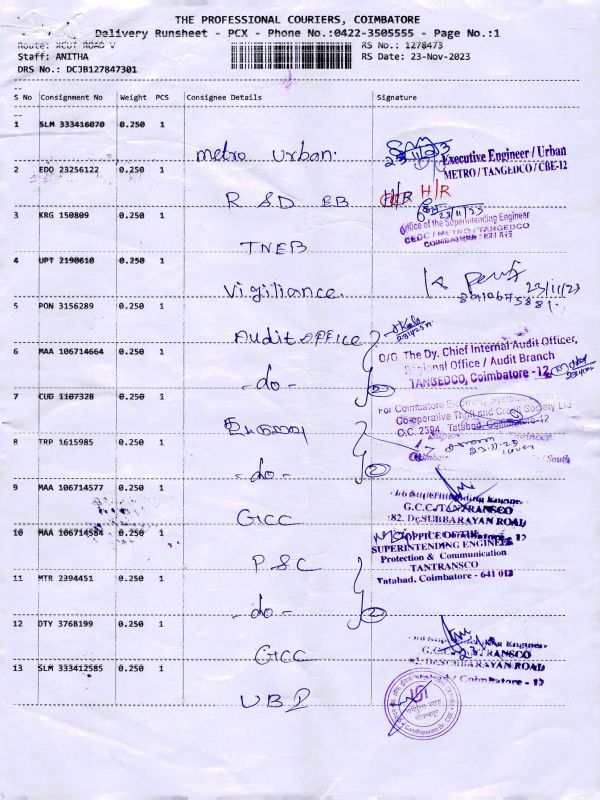 THE PROFESSIONAL COURIERS, COIMBATORE
Delivery Runsheet - PCX - Phone No.:0422-3505555 - Page No.:1
Route: XCUT ROAD V
RS No.: 1278473
Staff: ANITHA
RS Date: 23-Nov-2023
DRS No.: DCJB127847301
S No Consignment No Weight PCS Consignee Details Signature
1 SLM 333416070 0.250 1
metro urban.
23/11/23
Executive Engineer / Urban
METRO / TANGEDCO / CBE-12
2 EDO 23256122 0.250 1
R S D EB
H/R H/R
3 KRG 150809 0.250 1
Office of the Superintending Engineer
CEDC / METRO / TANGEDCO
COIMBATORE - 641 012
TNEB
4 UPT 2190610 0.250 1
Vigiliance.
23/11/23
5 PON 3156289 0.250 1
Audit office
6 MAA 106714664 0.250 1
O/O The Dy. Chief Internal Audit Officer,
Regional Office / Audit Branch
TANGEDCO, Coimbatore - 12
-do- 2
7 CUD 1107328 0.250 1
For Coimbatore Electricity
Co-operative Thrift and Credit Society Ltd
O.C. 2394, Tatabad, Coimbatore-12
8 TRP 1615985 0.250 1
23.11.23
South
-do- 2
9 MAA 106714577 0.250 1
Superintending Engineer
G.C.C./TANTRANSCO
182, Dr.SUBBARAYAN ROAD
GCC
10 MAA 106714584 0.250 1
OFFICE OF THE
SUPERINTENDING ENGINEER
Protection & Communication
TANTRANSCO
Tatabad, Coimbatore - 641 012
P S C
11 MTR 2394451 0.250 1
-do- 2
12 DTY 3768199 0.250 1
GCC
TRANSCO
82, Dr.SUBBARAYAN ROAD
Coimbatore - 12
13 SLM 333412585 0.250 1
UBI